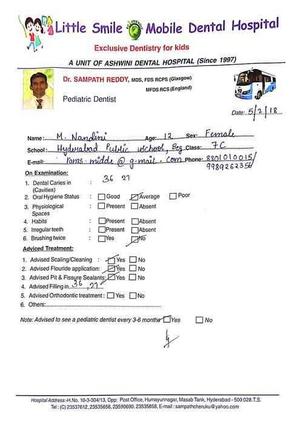 Little Smile Mobile Dental Hospital
Exclusive Dentistry for kids
A UNIT OF ASHWINI DENTAL HOSPITAL (Since 1997)
Dr. SAMPATH REDDY, MDS, FDS RCPS (Glasgow)
MFDS RCS (England)
Pediatric Dentist
Date: 5/2/18
Name: M. Nandini Age: 12 Sex: Female
School: Hyderabad Public school, Beg. Class: 7C
E-mail: @g-mail.com Phone: 8801010015/
On Examination:
1. Dental Caries in 36 27
(Cavities)
2. Oral Hygiene Status Good Average Poor
3. Physiological Present Absent
Spaces
4. Habits Present Absent
5. Irregular teeth Present Absent
6. Brushing twice Yes No
Adviced Treatment:
1. Advised Scaling/Cleaning : Yes No
2. Advised Flouride application: Yes No
3. Advised Pit & Fissure Sealants: Yes No
4. Advised Filling in 36, 27
5. Advised Orthodontic treatment : Yes No
6. Others:
Note: Advised to see a pediatric dentist every 3-6 months Yes No
Hospital Address:-H.No. 10-3-304/13, Opp: Post Office, Humayunnagar, Masab Tank, Hyderabad - 500 028.T.S.
Tel: (C) 23537612, 23535658, 23590690. 23535658, E-mail: sampathcheruku@yahoo.com